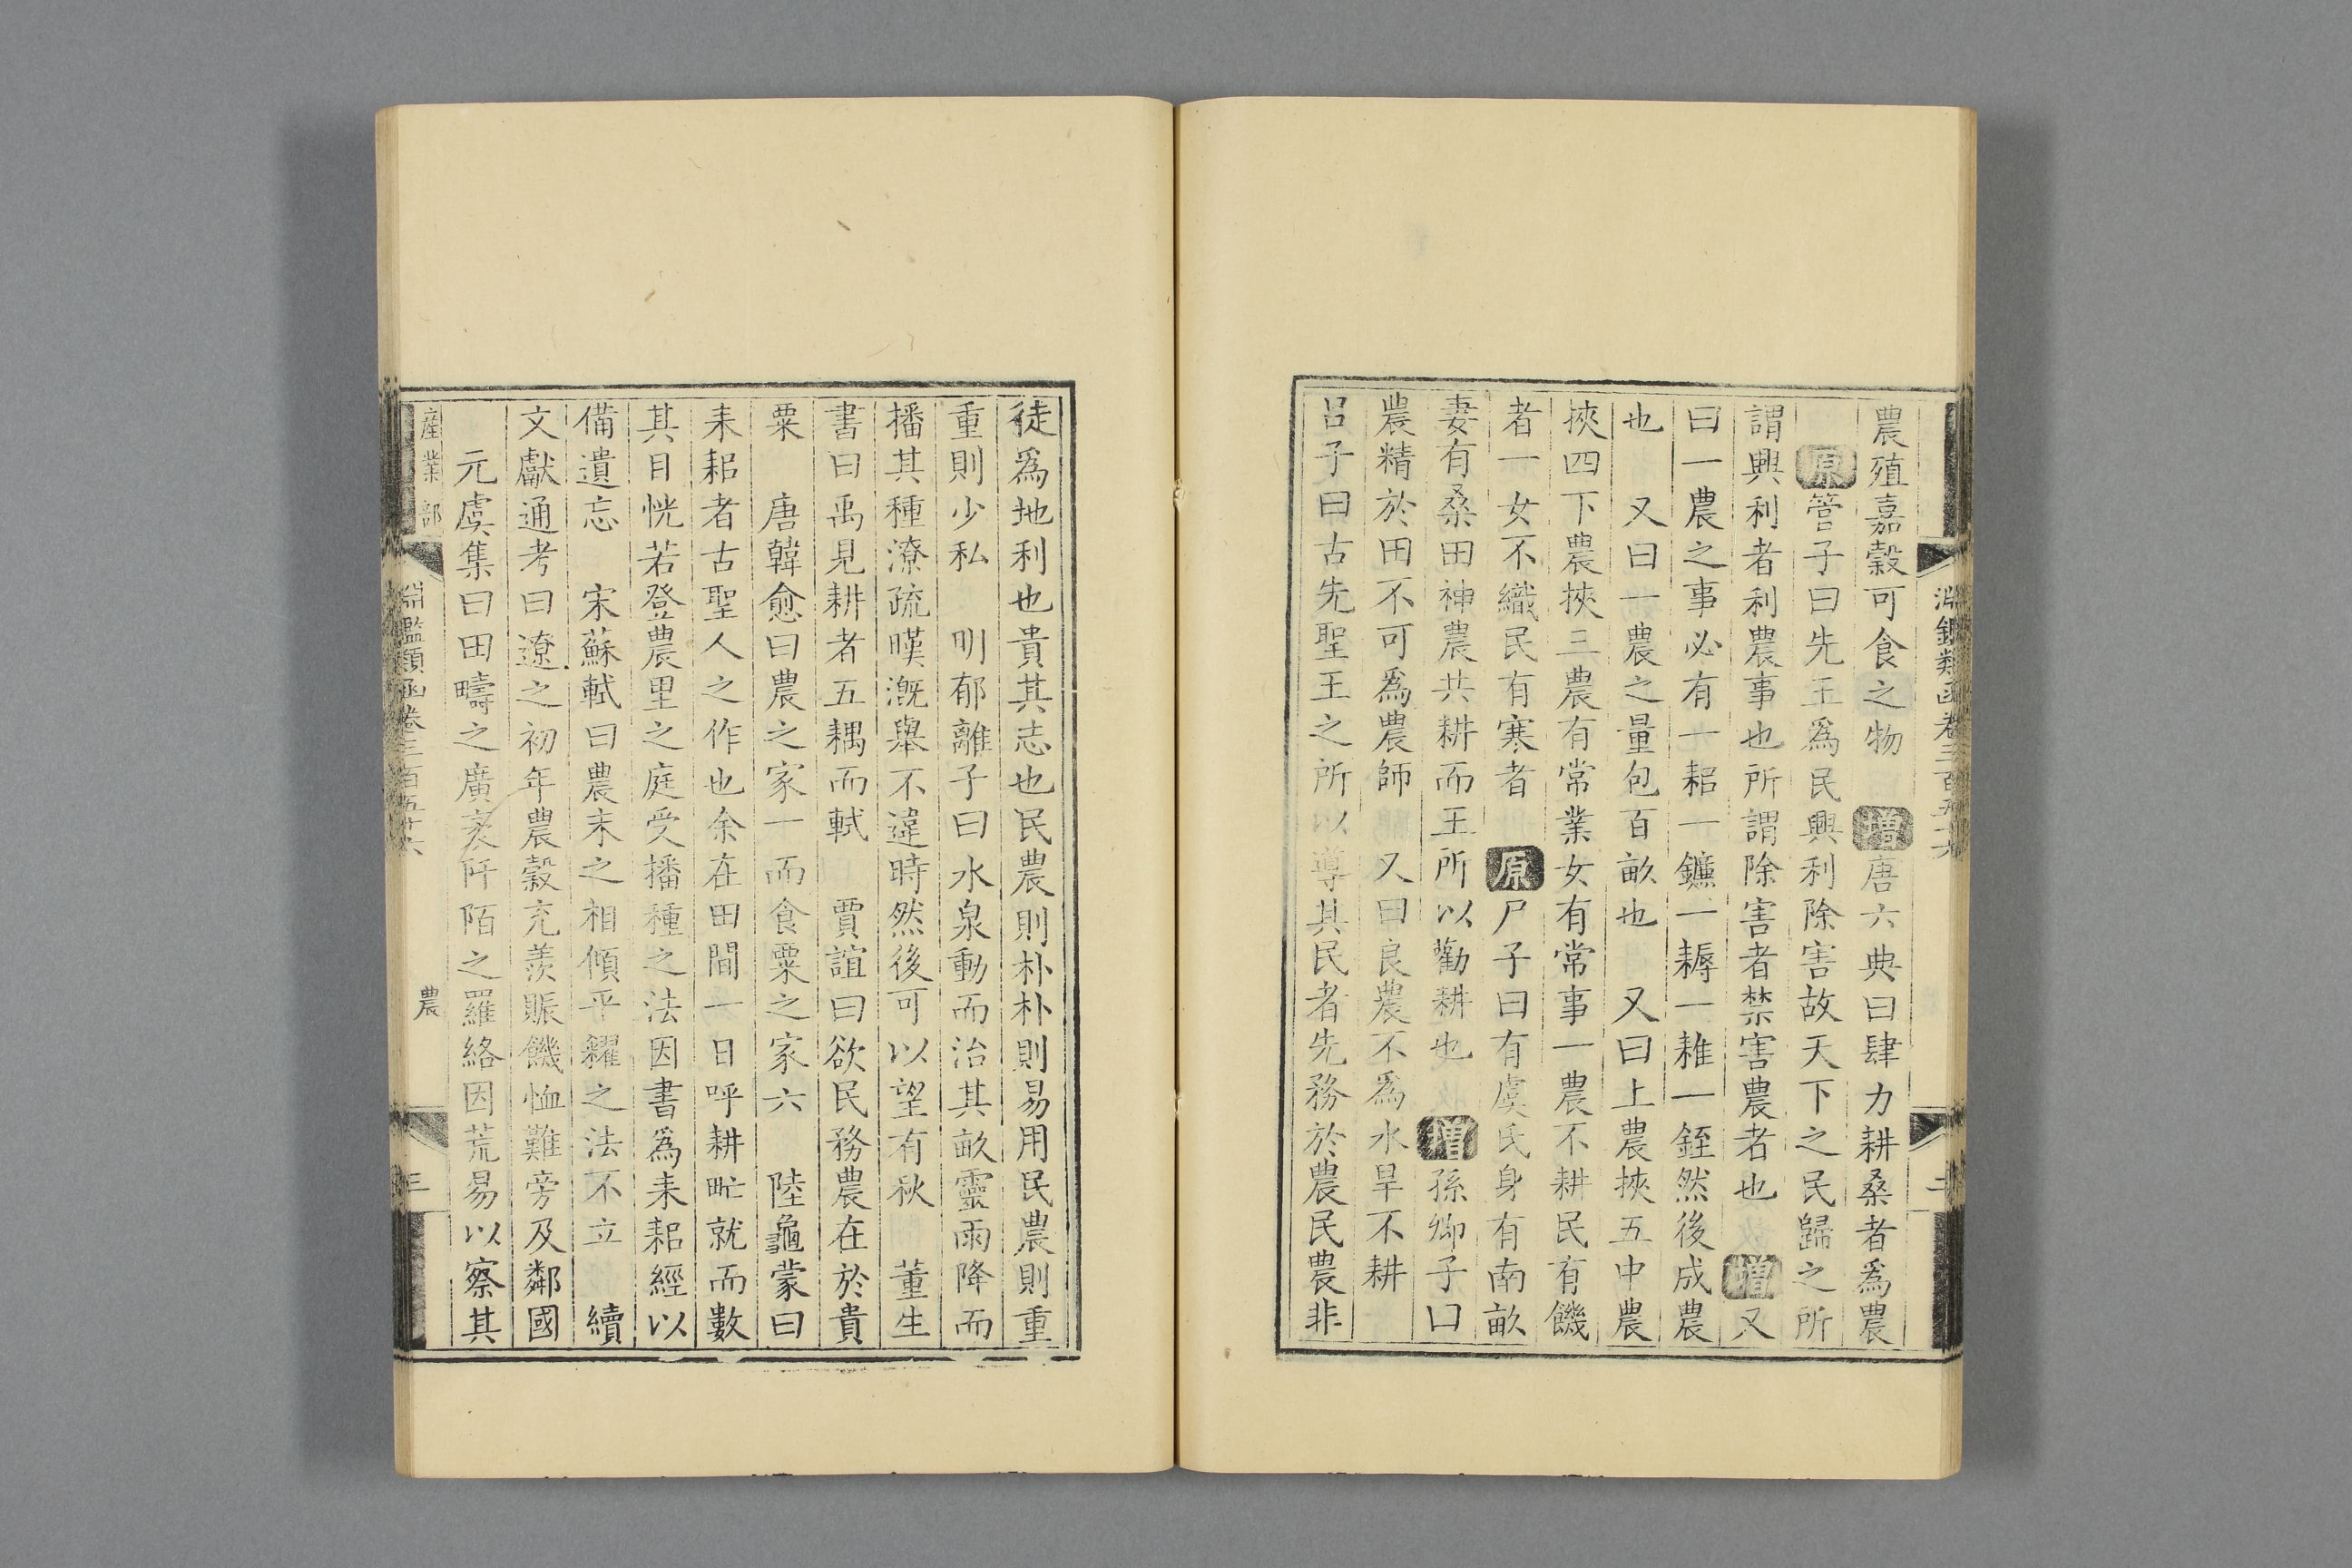 農殖嘉穀可食之物 增唐六典曰肆力耕桑者爲農
原管子曰先王爲民興利除害故天下之民歸之所
謂興利者利農事也所謂除害者禁害農者也 增又
曰一農之事必有一耜一鐮一耨一椎一銍然後成農
也 又曰一農之量包百畝也 又曰上農挾五中農
挾四下農挾三農有常業女有常事一農不耕民有饑
者一女不織民有寒者 原尸子曰有虞氏身有南畝
妻有桑田神農共耕而王所以勸耕也 增孫卿子曰
農精於田不可爲農師 又曰良農不爲水旱不耕
呂子曰古先聖王之所以導其民者先務於農民農非
淵鑑類函卷三百五十六
二
徒爲地利也貴其志也民農則朴朴則易用民農則重
重則少私 明郁離子曰水泉動而治其畝靈雨降而
播其種潦疏暵漑舉不違時然後可以望有秋 董生
書曰禹見耕者五耦而軾 賈誼曰欲民務農在於貴
粟 唐韓愈曰農之家一而食粟之家六 陸龜蒙曰
耒耜者古聖人之作也余在田間一日呼耕甿就而數
其目恍若登農里之庭受播種之法因書爲耒耜經以
備遺忘 宋蘇軾曰農末之相傾平糴之法不立 續
文獻通考曰遼之初年農穀充羨賑饑恤難旁及鄰國
元虞集曰田疇之廣袤阡陌之羅絡因荒易以察其
產業部
淵鑑類函卷三百五十六
農
三